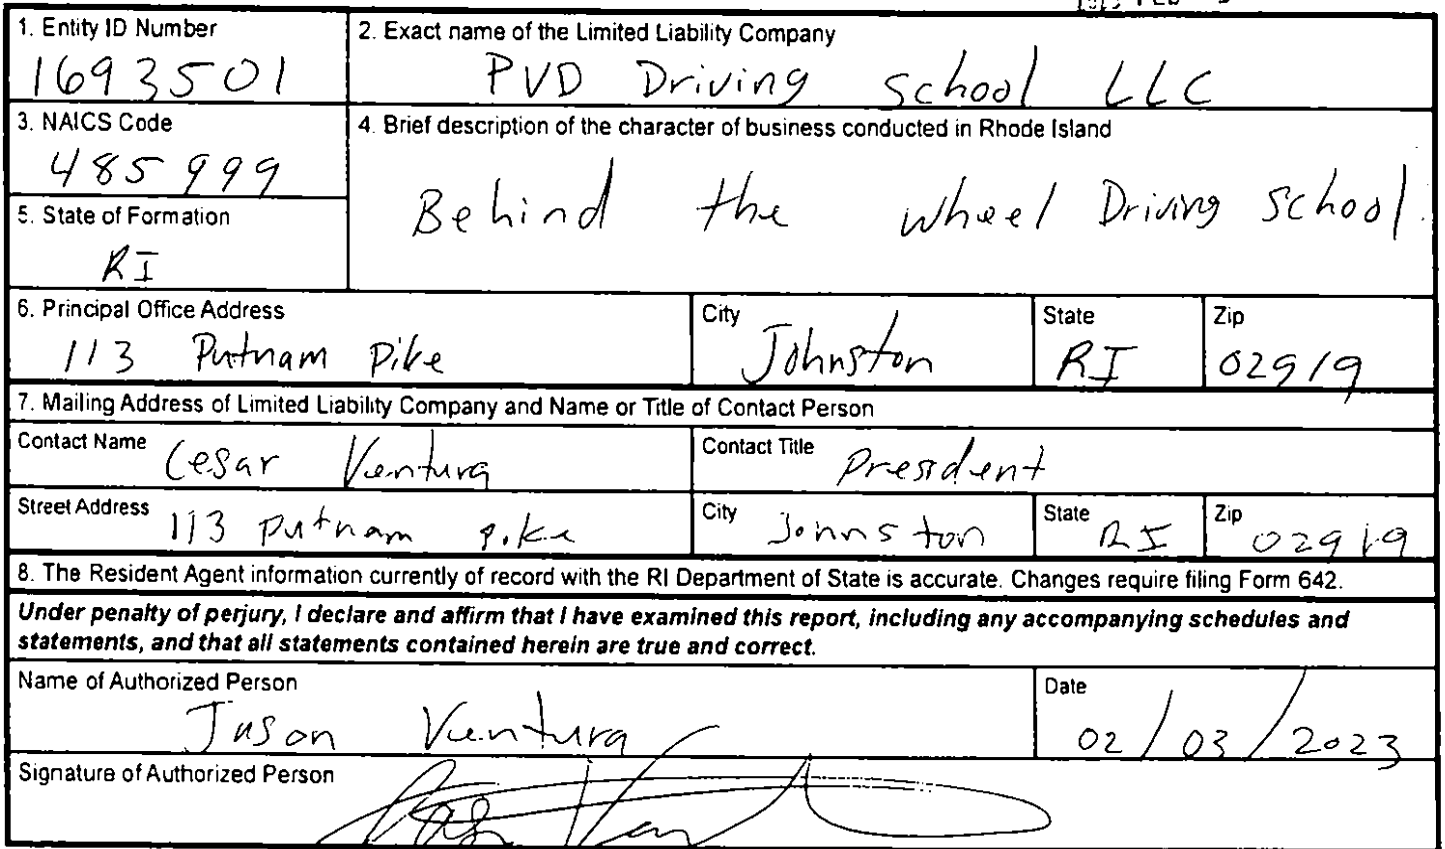 1. Entity ID Number
1693501
2. Exact name of the Limited Liability Company
PVD Driving School LLC
3. NAICS Code
485999
4. Brief description of the character of business conducted in Rhode Island
Behind the wheel Driving School.
5. State of Formation
RI
6. Principal Office Address
113 Putnam Pike
City
Johnston
State
RI
Zip
02919
7. Mailing Address of Limited Liability Company and Name or Title of Contact Person
Contact Name
Cesar Ventura
Contact Title
President
Street Address
113 Putnam Pike
City
Johnston
State
RI
Zip
02919
8. The Resident Agent information currently of record with the RI Department of State is accurate. Changes require filing Form 642.
Under penalty of perjury, I declare and affirm that I have examined this report, including any accompanying schedules and
statements, and that all statements contained herein are true and correct.
Name of Authorized Person
Jason Ventura
Date
02/03/2023
Signature of Authorized Person